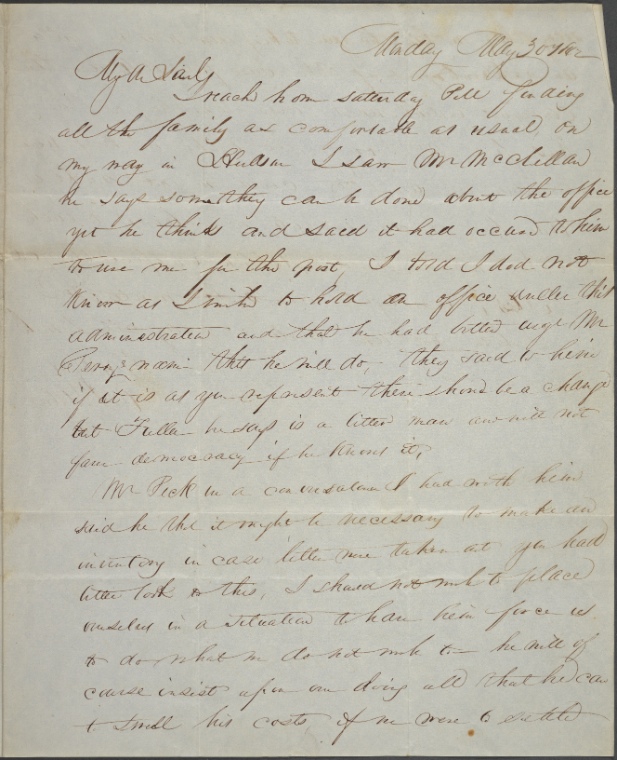 Monday May 30
My Dr
I reach home saturday P.M. finding
all the family as comfortable as usual on
my way in Hudson I saw Mr McClellan
he says something can be done about the office
yet he thinks and said it had occured to him
to use me for the post, I told I did not
Know as I wished to hold an office under this
administration and that he had better urge Mr
name this he will do, they said to him
if it is as you represent there should be a change
but Fuller he says is a bitter man and will not
favor democracy if he Knows it.
Mr Peck in a conversation I had with him
said he tho't it might be necessary to make an
inventory in case letters were taken out you had
better look to this, I should not wish to place
ourselves in a situation to have him force us
to do what we do not wish to he will of
course insist upon our doing all that he can
to swell his costs, if we were to settle